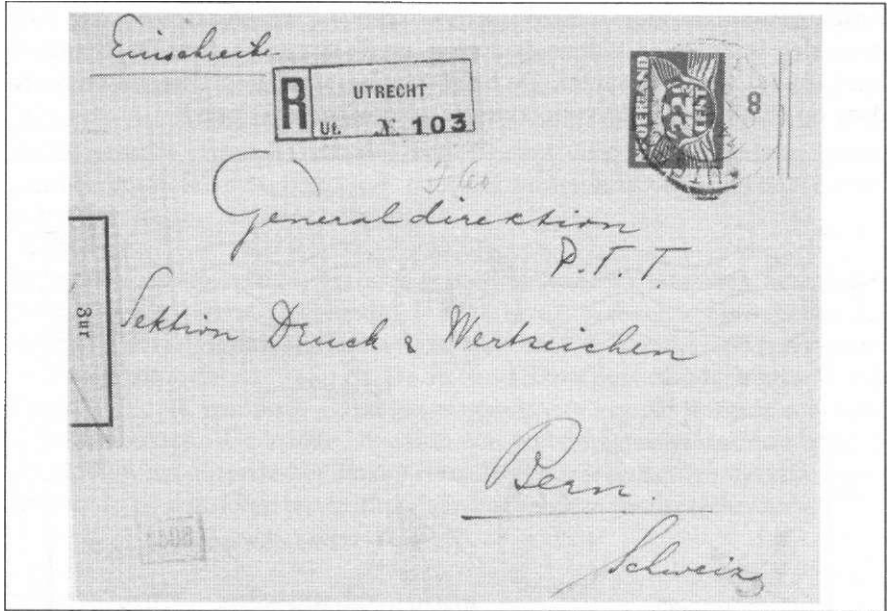 Einschreiben
R UTRECHT
Ut. № 103
NEDERLAND
22½
CENT
8
Generaldirektion
P.T.T.
Sektion Druck & Wertzeichen
Zur
Bern.
Schweiz